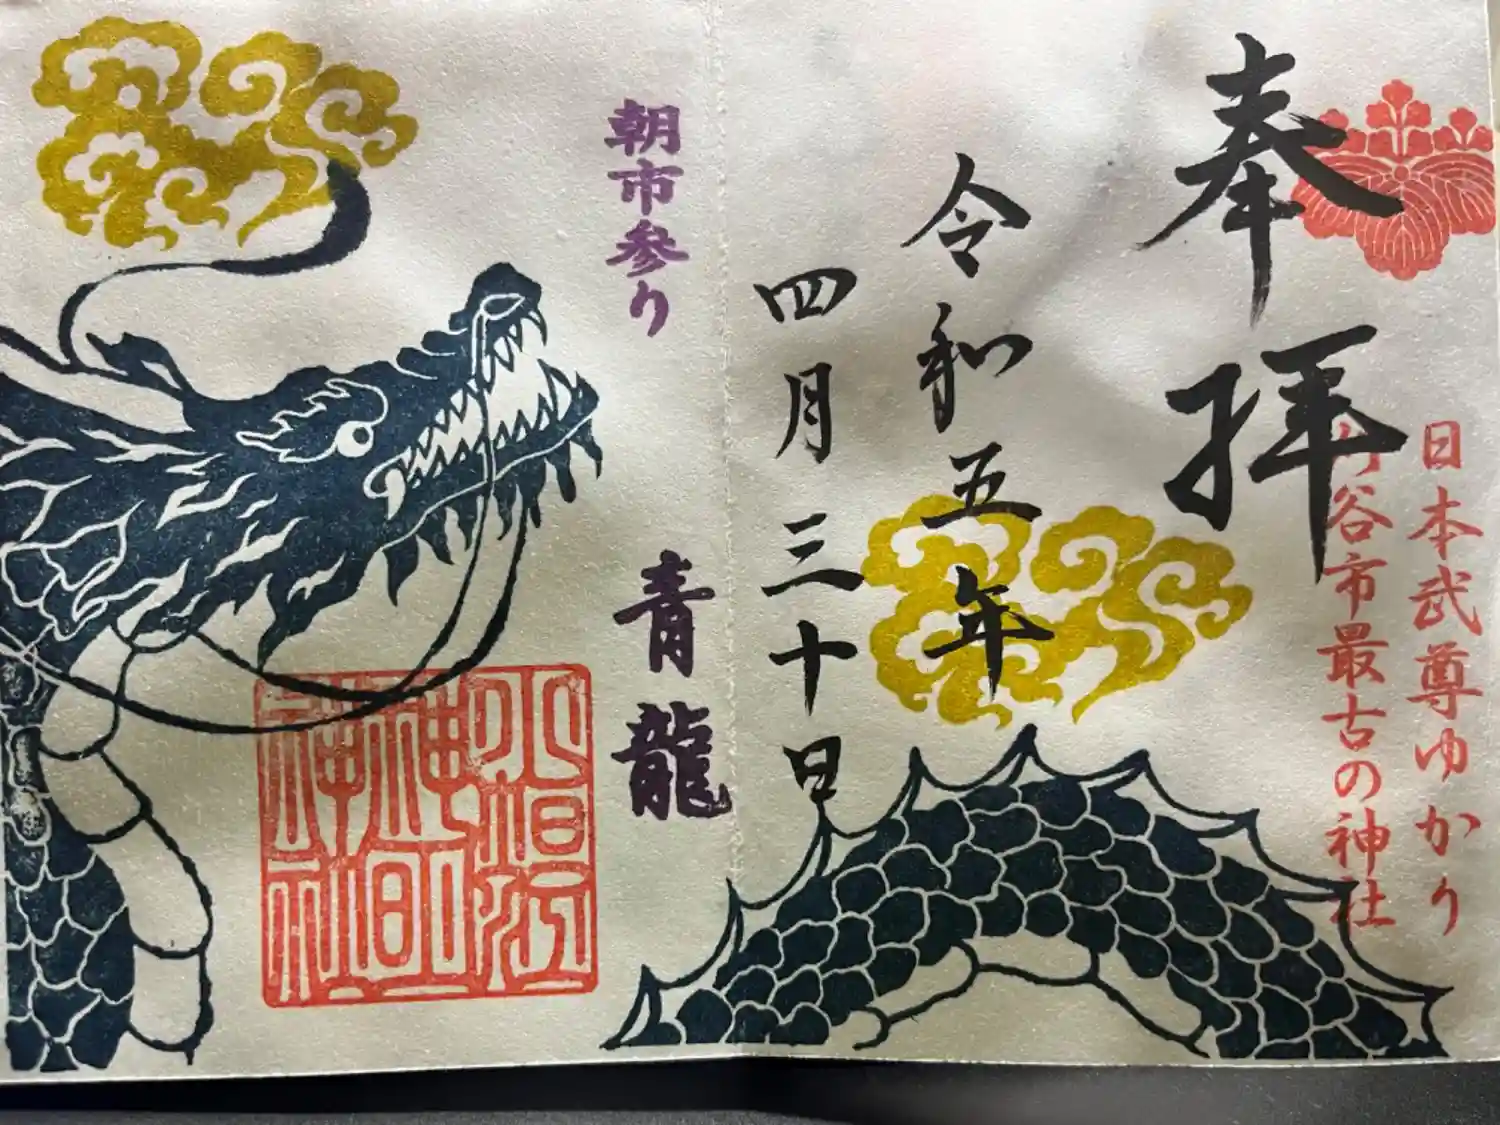 奉拝
日本武尊ゆかり
刈谷市最古の神社
令和五年
四月三十日
朝市参り
青龍
小垣江
神明
神社